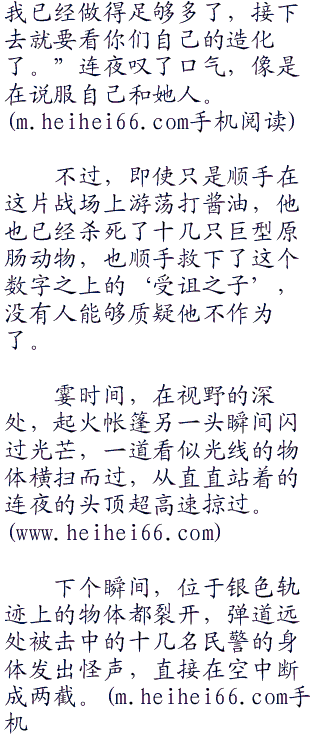 我已经做得足够多了，接下
去就要看你们自己的造化
了。”连夜叹了口气，像是
在说服自己和她人。
(m.heihei66.com手机阅读)
不过，即使只是顺手在
这片战场上游荡打酱油，他
也已经杀死了十几只巨型原
肠动物，也顺手救下了这个
数字之上的‘受诅之子’，
没有人能够质疑他不作为
了。
霎时间，在视野的深
处，起火帐篷另一头瞬间闪
过光芒，一道看似光线的物
体横扫而过，从直直站着的
连夜的头顶超高速掠过。
(www.heihei66.com)
下个瞬间，位于银色轨
迹上的物体都裂开，弹道远
处被击中的十几名民警的身
体发出怪声，直接在空中断
成两截。(m.heihei66.com手
机